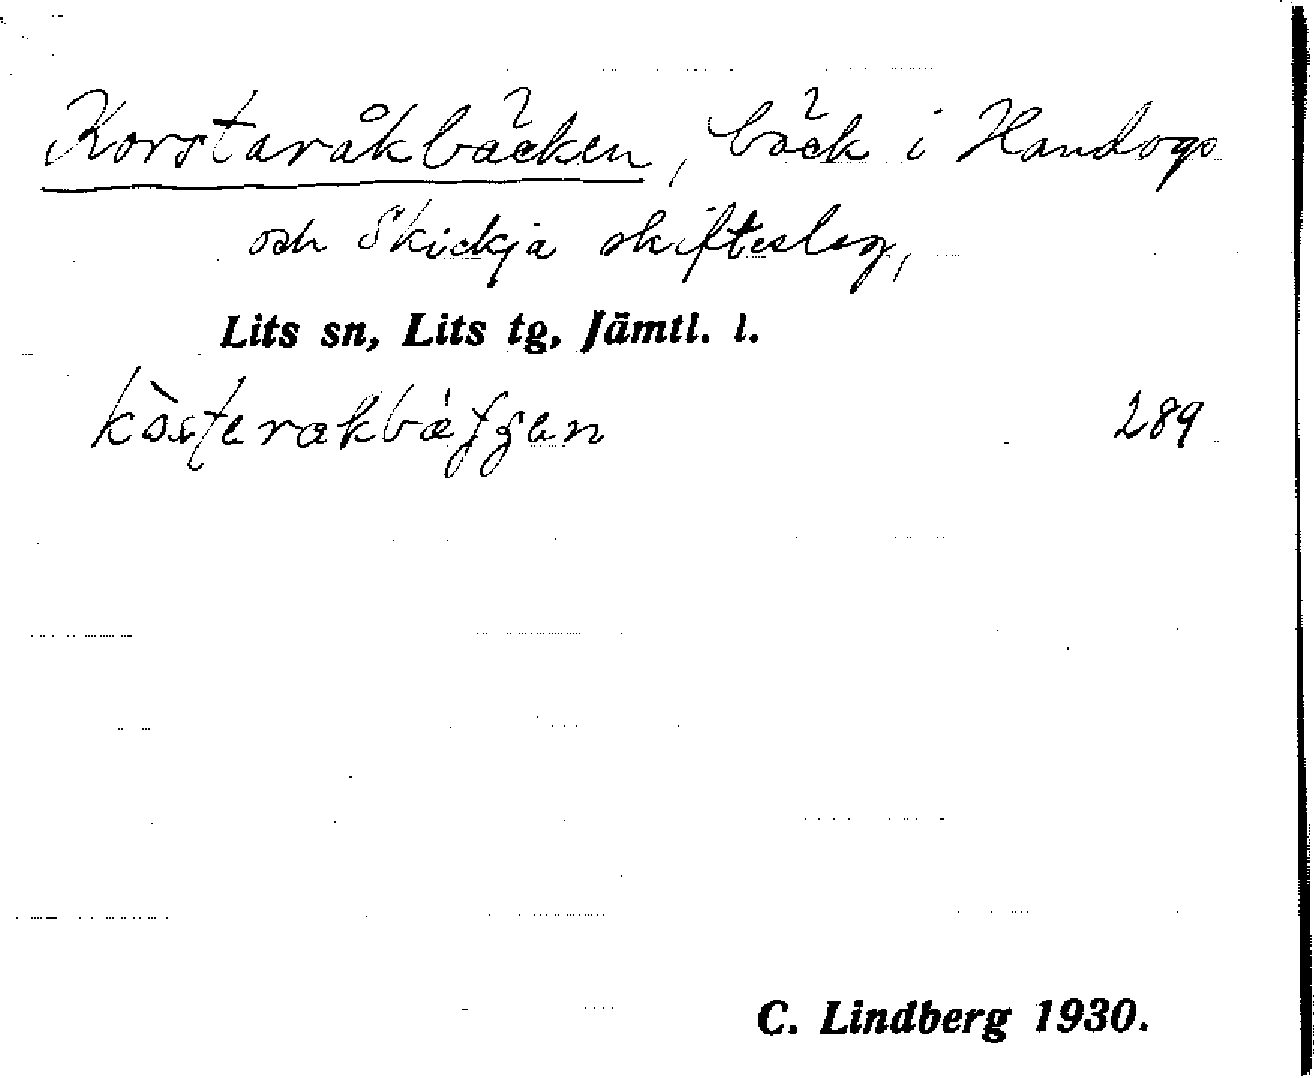 Korstaråkbäcken, bäck i Handogs
och Skickja skifteslag,
Lits sn, Lits tg, Jämtl. l.
289
C. Lindberg 1930.